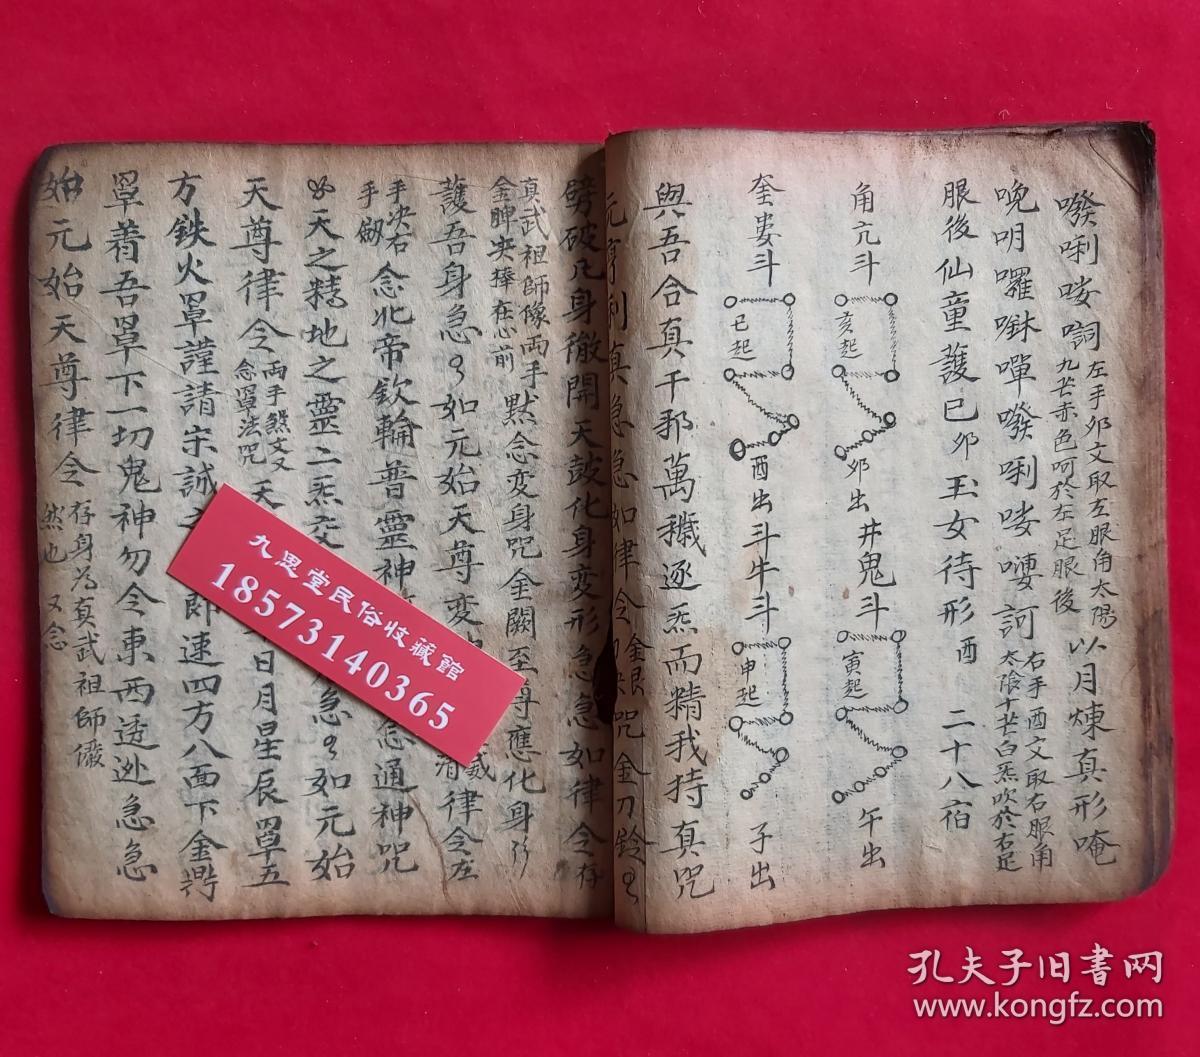 嘐唎唛𠹌 左手卯文取左眼角太陽九芒赤色呵於左足眼後 以月煉真形唵
唍明囉𠸎嘽嘐唎唛嘍訶 右手酉文取右眼角太陰十芒白炁吹於右足
眼後仙童護已卯玉女待形酉 二十八宿
角亢斗 亥起 卯出 井鬼斗 寅起 午出
奎婁斗 巳起 酉出 斗牛斗 申起 子出
與吾合真千邪萬穢逐炁而精我持真咒
元亨利真急急如律令 金銀 咒金刀鈴
劈破凡身徹開天鼓化身変形急急如律令存
真武祖師像両手金 在心前 默念变身咒金闕至尊應化身
護吾身急 如元始天尊变 律令左
手決右手劔 念北帝欽輪普靈神 念通神咒
天之精地之靈二炁交 急 如元始
天尊律令 両手 文又念罩法咒 天 日月星辰罩五
方鉄火罩謹請宋誠 即速四方八面下金
罩着吾罩下一切鬼神勿令東西逃 急急
如元始天尊律令 存身为真武祖師 然也 又念
九思堂民俗收藏館
18573140365
孔夫子旧書网
www.kongfz.com